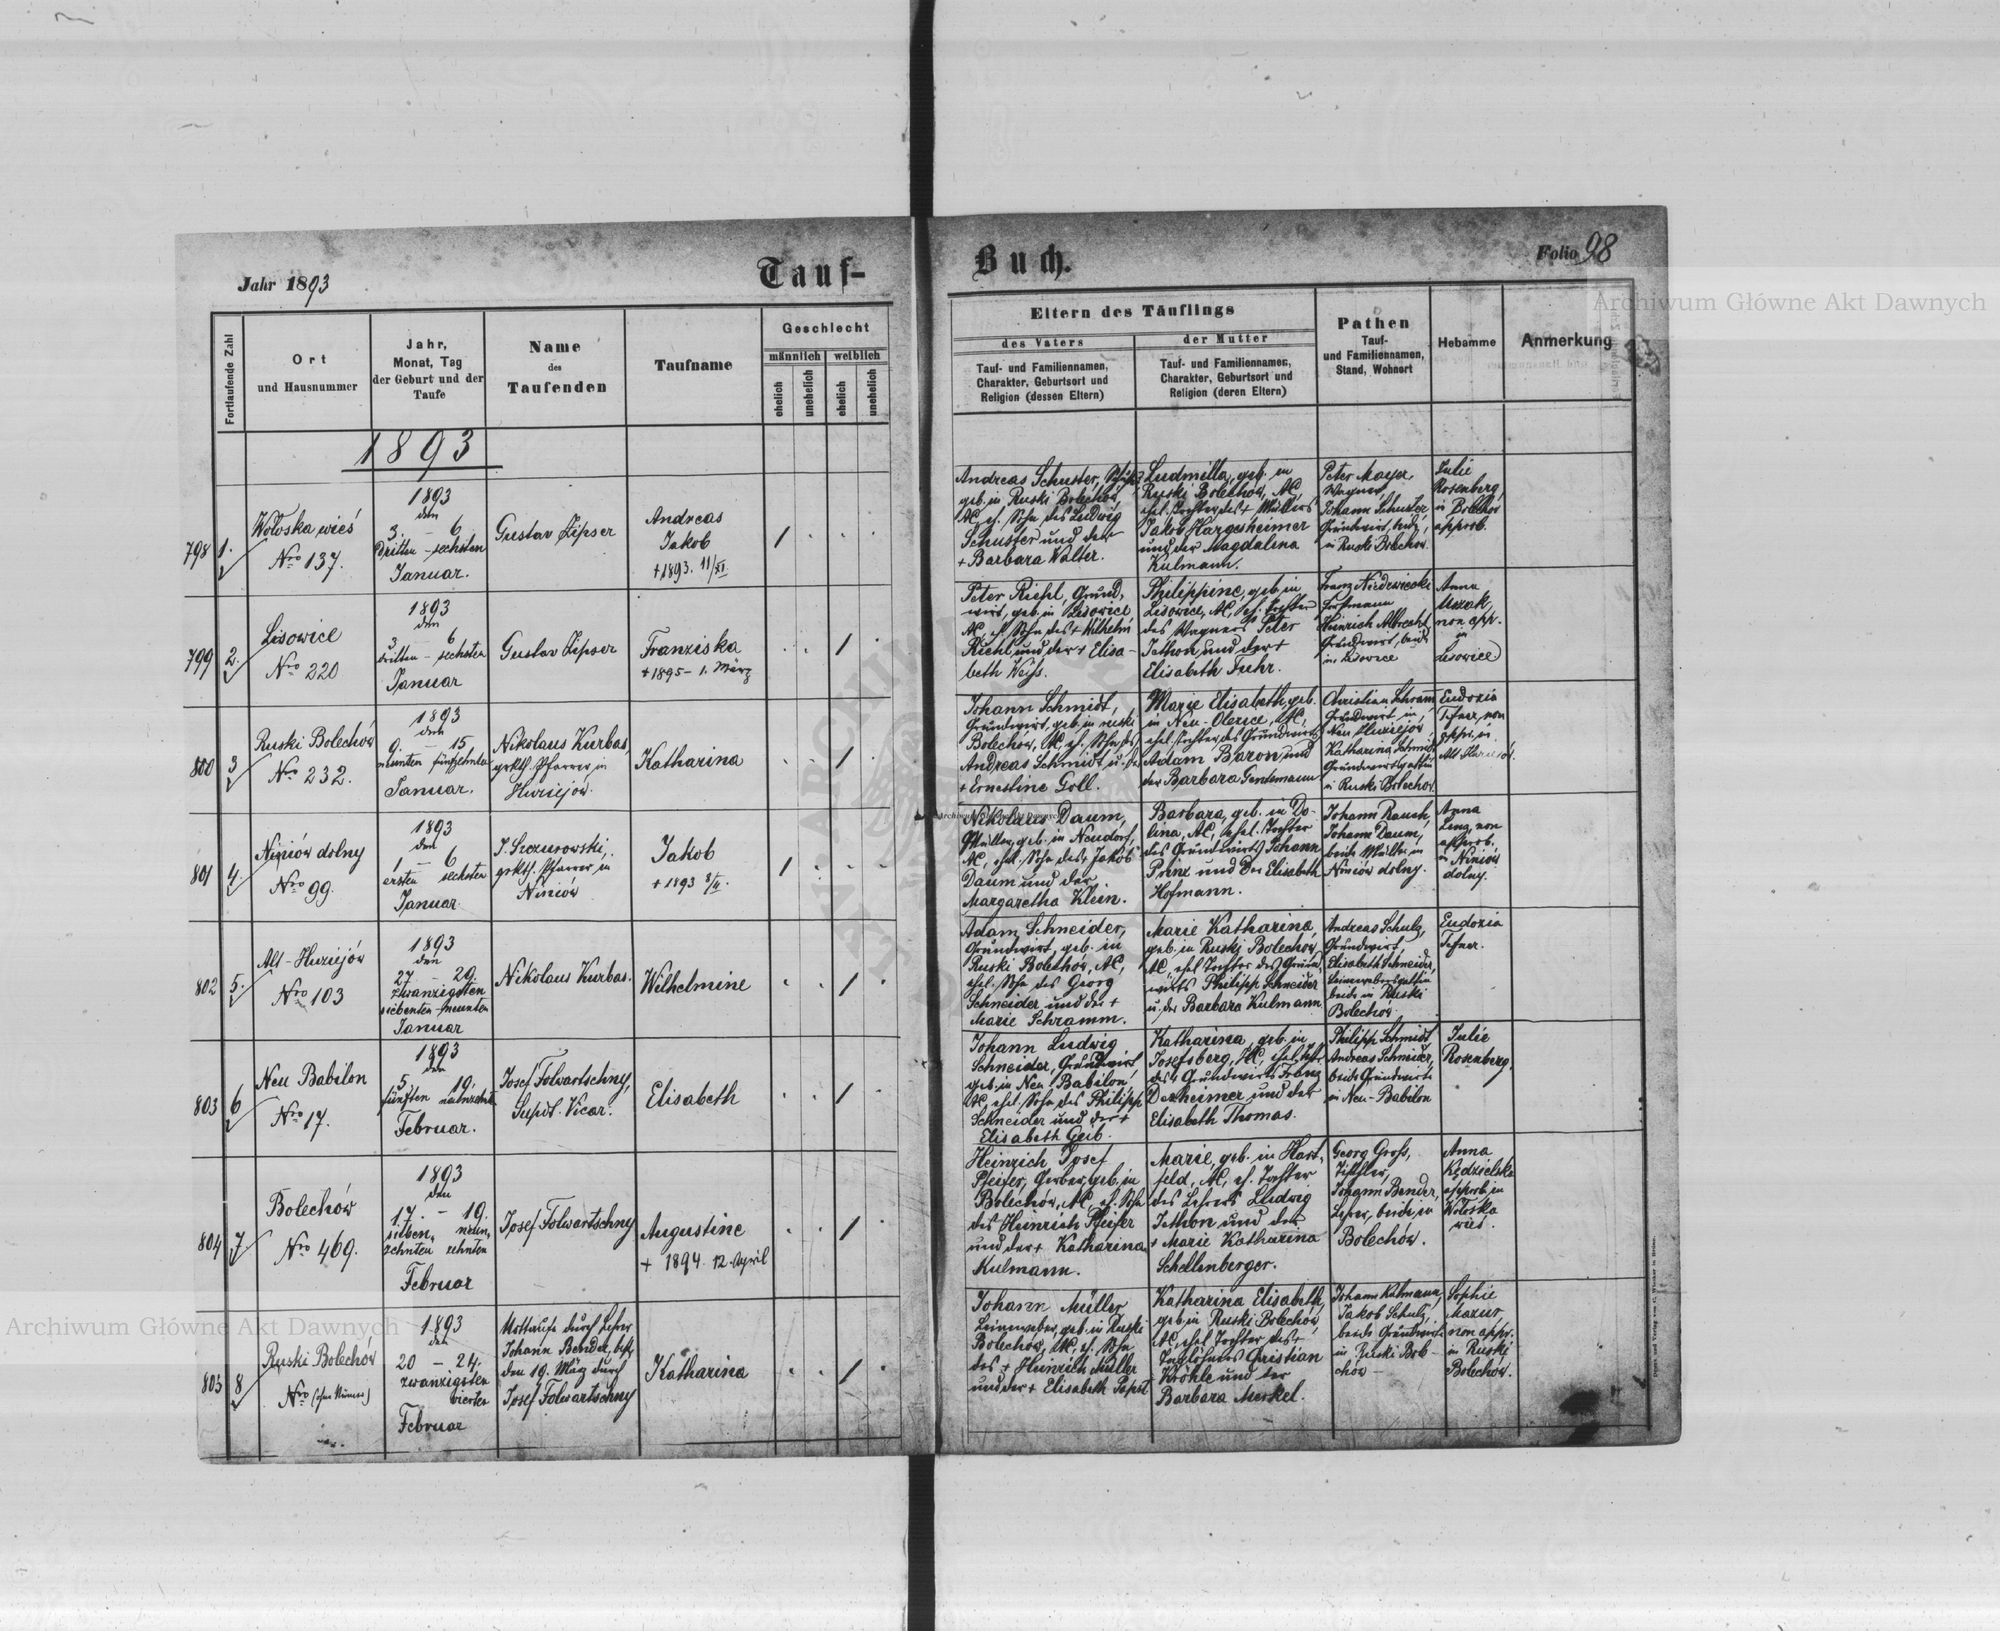 Jahr 1893
Tauf-
Buch.
Folio 98
Archiwum Główne Akt Dawnych
Fortlaufende Zahl
Ort
und Hausnummer
Jahr,
Monat, Tag
der Geburt und der
Taufe
Name
des
Taufenden
Taufname
Geschlecht
männlich
weiblich
ehelich
unehelich
ehelich
unehelich
Eltern des Täuflings
des Vaters
Tauf- und Familiennamen,
Charakter, Geburtsort und
Religion (dessen Eltern)
der Mutter
Tauf- und Familiennamen,
Charakter, Geburtsort und
Religion (deren Eltern)
Pathen
Tauf-
und Familiennamen,
Stand, Wohnort
Hebamme
Anmerkung
1893
798
1.
Wołoska wieś
Nro 137.
1893
den
3. – 6.
dritten – sechsten
Januar.
Gustav Zipser
Andreas
Jakob
+ 1893. 11/XI.
1
Andreas Schuster,
geb. in Ruski Bolechów,
AC, eh. Sohn des Ludwig
Schuster und der
+ Barbara Walter.
Ludmilla, geb. in
Ruski Bolechów, AC,
ehel. Tochter des + Müllers
Jakob Hargesheimer
und der Magdalina
Kulmann.
Peter Mayer,
Wagner,
Johann Schuster,
Grundwirt, beide
in Ruski Bolechow.
Julie
Rosenberg,
in Bolechów
approb.
799
2.
Lisowice
Nro 220
1893
den
3. – 6.
dritten – sechsten
Januar
Gustav Zipser
Franziska
+ 1895 – 1. März
1
Peter Riehl, Grund-
wirt, geb. in Lisowice,
AC, eh. Sohn des + Wilhelm
Riehl und der + Elisa-
beth Weiss.
Philippine, geb. in
Lisowice, AC, eh. Tochter
des Wagners Peter
Jathon und der +
Elisabeth Fuhr.
Franz Niedzwiecki
Forstmann
Heinrich Albrecht,
Grundwirt, beide
in Lisowice
Anna
non appr.
in
Lisowice
800
3
Ruski Bolechów
Nro 232.
1893
den
9. – 15.
neunten fünfzehnten
Januar.
Nikolaus Kurbas,
grkth. Pfarrer in
Huziejów.
Katharina
1
Johann Schmidt,
Grundwirt, geb. in ruski
Bolechow, AC, eh. Sohn des
Andreas Schmidt u. der
+ Ernestine Goll.
Marie Elisabeth, geb.
in Neu-Olexice, AC,
ehel. Tochter des Grundwirts
Adam Baron und
der Barbara Gentemann
Christian Schramm
Grundwirt, in
Neu Huziejów,
Katharina Schmidt
Grundwirtsgattin
in Ruski Bolechow.
Eudoxia
Tefner, non
appr. in
Alt Huziejów.
Archiwum Główne Akt Dawnych
801
4.
Niniów dolny
Nro 99.
1893
den
1 – 6
ersten sechsten
Januar.
J. Szczurowski,
grkth. Pfarrer in
Niniów
Jakob
+ 1893 8/II.
1
Nikolaus Daum,
Müller, geb. in Neudorf,
AC, ehel. Sohn des + Jakob
Daum und der
Margaretha Klein.
Barbara, geb. in Do-
lina, AC, ehel. Tochter
des Grundwirts Johann
Prinz und der Elisabeth
Hofmann.
Johann Rausch,
Johann Daum,
beide Müller in
Niniów dolny.
Anna
Lenz, non
approb.
in Niniów
dolny.
802
5.
Alt-Huziejów
Nro 103
1893
den
27 – 29.
zwanzigsten
siebenten – neunten
Januar
Nikolaus Kurbas.
Wilhelmine
1
Adam Schneider,
Grundwirt, geb. in
Ruski Bolechów, AC,
ehel. Sohn des Georg
Schneider und der +
Marie Schramm.
Marie Katharina,
geb. in Ruski Bolechów,
AC, ehel. Tochter des Grund-
wirts Philipp Schneider
u. der Barbara Kulmann
Andreas Schulz,
Grundwirt,
Elisabeth Schneider,
Leinwebersgattin
beide in Ruski
Bolechów
Eudoxia
Tefner.
803
6
Neu Babilon
Nro 17.
1893
den
5. 19.
fünften neunzehnten
Februar.
Josef Folwartschny,
Supdt. Vicar.
Elisabeth
1
Johann Ludwig
Schneider, Grundwirt
geb. in Neu Babilon,
AC, ehel. Sohn des Philipp
Schneider und der +
Elisabeth Geib.
Katharina, geb. in
Josefsberg, HC, ehel. Tochter
des + Grundwirts Franz
Dexheimer und der
Elisabeth Thomas.
Philipp Schmidt,
Andreas Schneider,
beide Grundwirte
in Neu-Babilon
Julie
Rosenberg.
804
7
Bolechów
Nro 469.
1893
den
17. – 19.
sieben- neun-
zehnten zehnten
Februar
Josef Folwartschny
Augustine
+ 1894 12. April
1
Heinrich Josef
Pfeifer, Gerber, geb. in
Bolechów, AC, eh. Sohn
des Heinrich Pfeifer
und der + Katharina
Kulmann.
Marie, geb. in Hart-
feld, AC, eh. Tochter
des Lehrers Ludwig
Jathon und der
+ Marie Katharina
Schellenberger.
Georg Gross,
Tischler,
Johann Bender,
Lehrer, beide in
Bolechów.
Anna
approb. in
Wołoska
wieś.
803
8
Ruski Bolechów
Nro (ohne Nummer)
1893
den
20 – 24.
zwanzigsten
vierten
Februar
Nottaufe durch Lehrer
Johann Bender, best.
den 19. März durch
Josef Folwartschny
Katharina
1
Johann Müller
Leineweber, geb. in Ruski
Bolechów, AC, eh. Sohn
des + Heinrich Müller
und der + Elisabeth Papst
Katharina Elisabeth,
geb. in Ruski Bolechów,
AC, ehel. Tochter des +
Taglöhners Christian
Kröhle und der
Barbara Merkel.
Johann Kulmann,
Jakob Schulz,
beide Grundwirte
in Ruski Bole-
chów
Sophie
Mazur,
non appr.
in Ruski
Bolechów.
Archiwum Główne Akt Dawnych